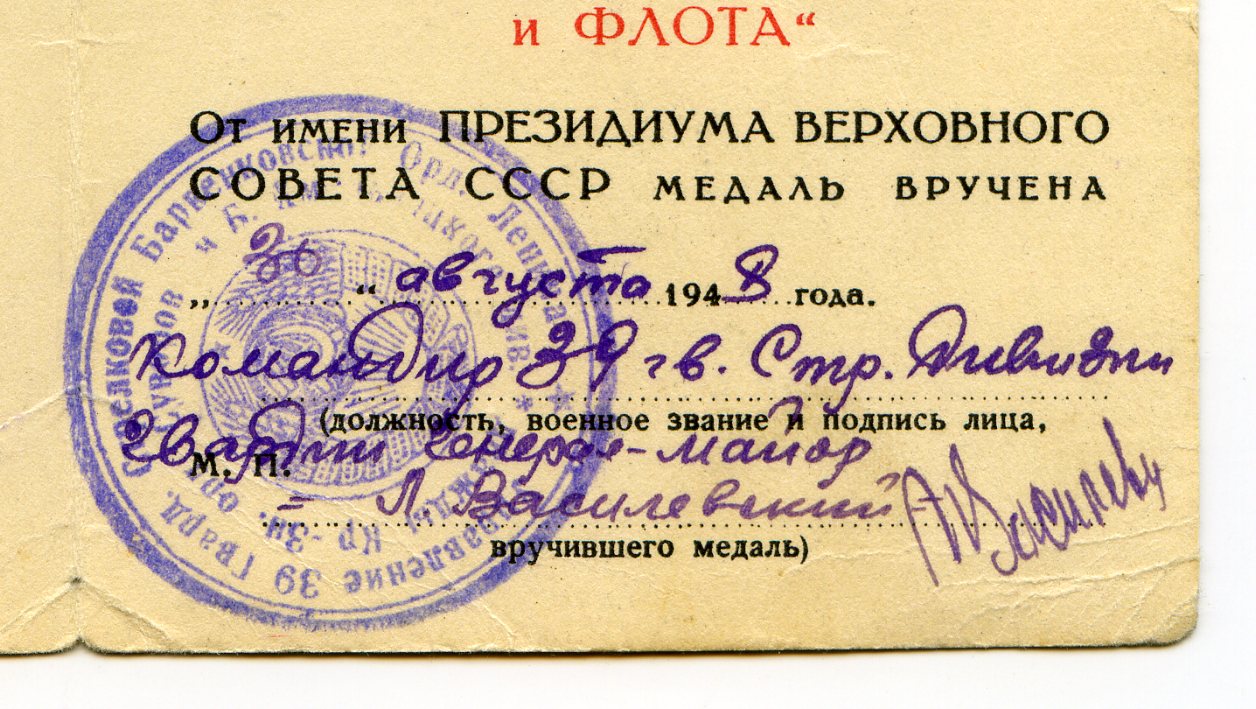 и ФЛОТА“
От имени ПРЕЗИДИУМА ВЕРХОВНОГО
СОВЕТА СССР МЕДАЛЬ ВРУЧЕНА
„30“ августа 1948 года.
Командир 39 гв. Стр. Дивизии
(должность, военное звание и подпись лица,
Гвардии Генерал-майор
М. П.
Л. Василевский
вручившего медаль)
Управление 39 Гвард. Стрелковой Барвенковской Орд. Ленина
орд. Суворов и Б. Хмельницкого див.